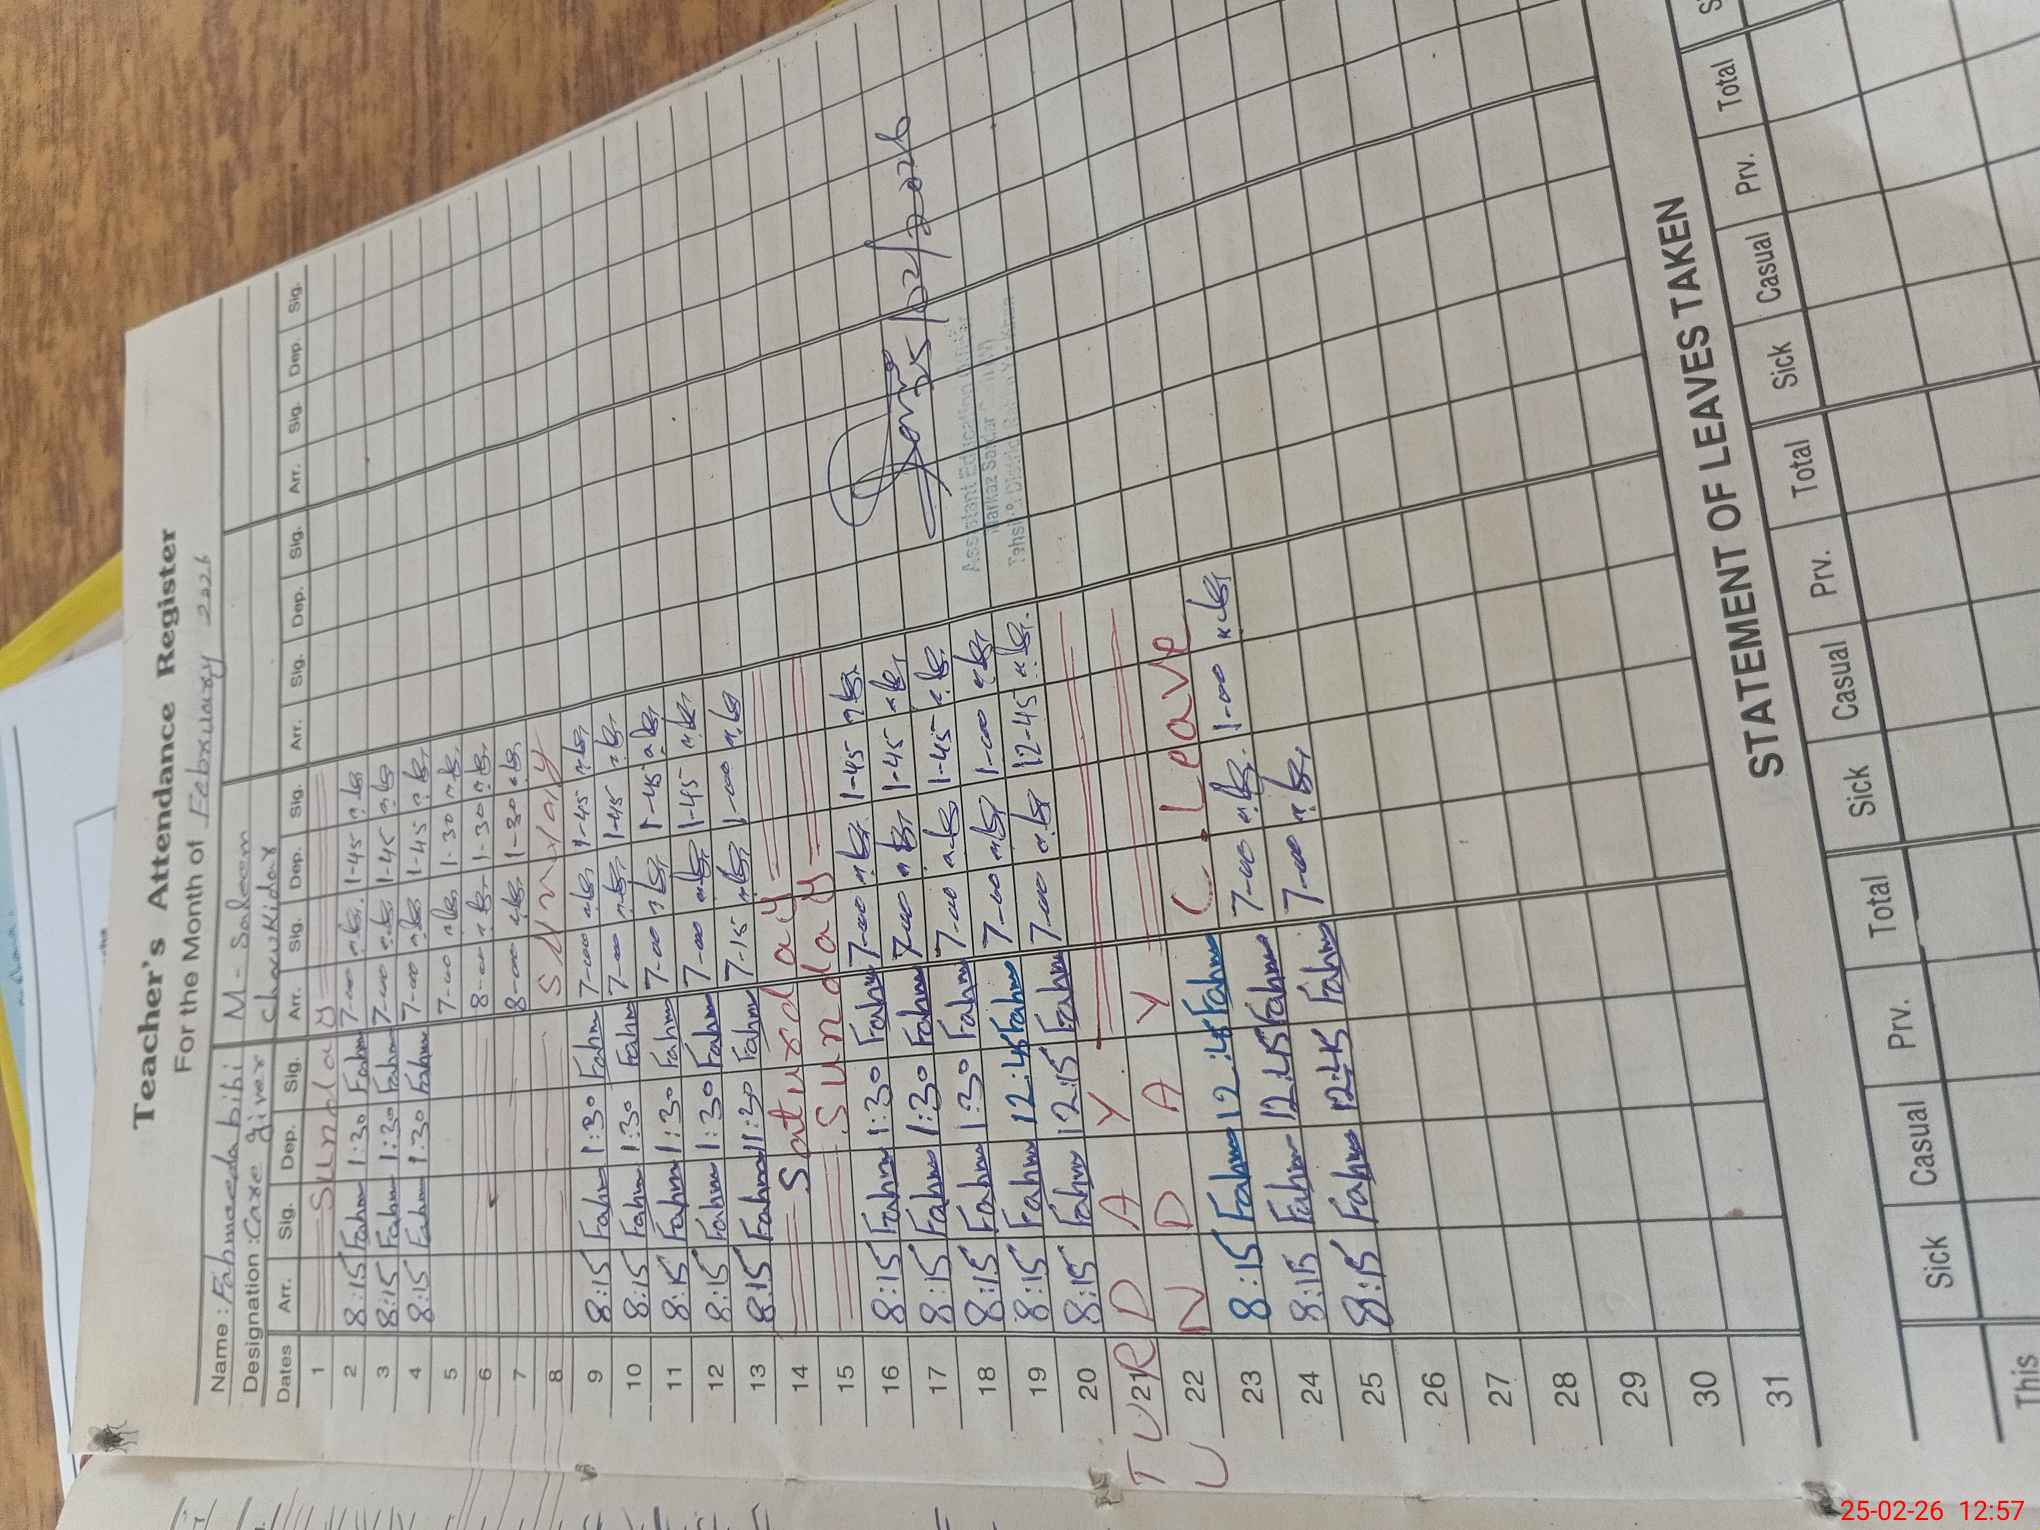 Teacher's Attendance Register
For the Month of February 2026
Name : Fahmeeda bibi M-Saleem
Designation : Care giver Chowkidar
Dates Arr. Sig. Dep. Sig. Arr. Sig. Dep. Sig. Arr. Sig. Dep. Sig. Arr. Sig. Dep. Sig.
1 Sunday
2 8:15 Fahm 1:30 Fahm 7-00 1-45
3 8:15 Fahm 1:30 Fahm 7-00 1-45
4 8:15 Fahm 1:30 Fahm 7-00 1-45
5 7-00 1-30
6 8-00 1-30
7 8-00 1-30
8 Sunday
9 8:15 Fahm 1:30 Fahm 7-00 1-45
10 8:15 Fahm 1:30 Fahm 7-00 1-45
11 8:15 Fahm 1:30 Fahm 7-00 1-45
12 8:15 Fahm 1:30 Fahm 7-00 1-45
13 8:15 Fahm 11:30 Fahm 7-15 1-00
14 Saturday
15 Sunday
16 8:15 Fahm 1:30 Fahm 7-00 1-45
17 8:15 Fahm 1:30 Fahm 7-00 1-45
18 8:15 Fahm 1:30 Fahm 7-00 1-45
19 8:15 Fahm 12:45 Fahm 7-00 1-00
20 8:15 Fahm 12:15 Fahm 7-00 12-45
21 T U R D A Y
22 U N D A Y C. Leave
23 8:15 Fahm 12:45 Fahm 7-00 1-00
24 8:15 Fahm 12:45 Fahm 7-00
25 8:15 Fahm 12:45 Fahm
26
27
28
29
30
31
25/02/2026
Assistant Education
Markaz Saddar
Tehsil & District
STATEMENT OF LEAVES TAKEN
Sick Casual Prv. Total Sick Casual Prv. Total Sick Casual Prv. Total
This
25-02-26 12:57